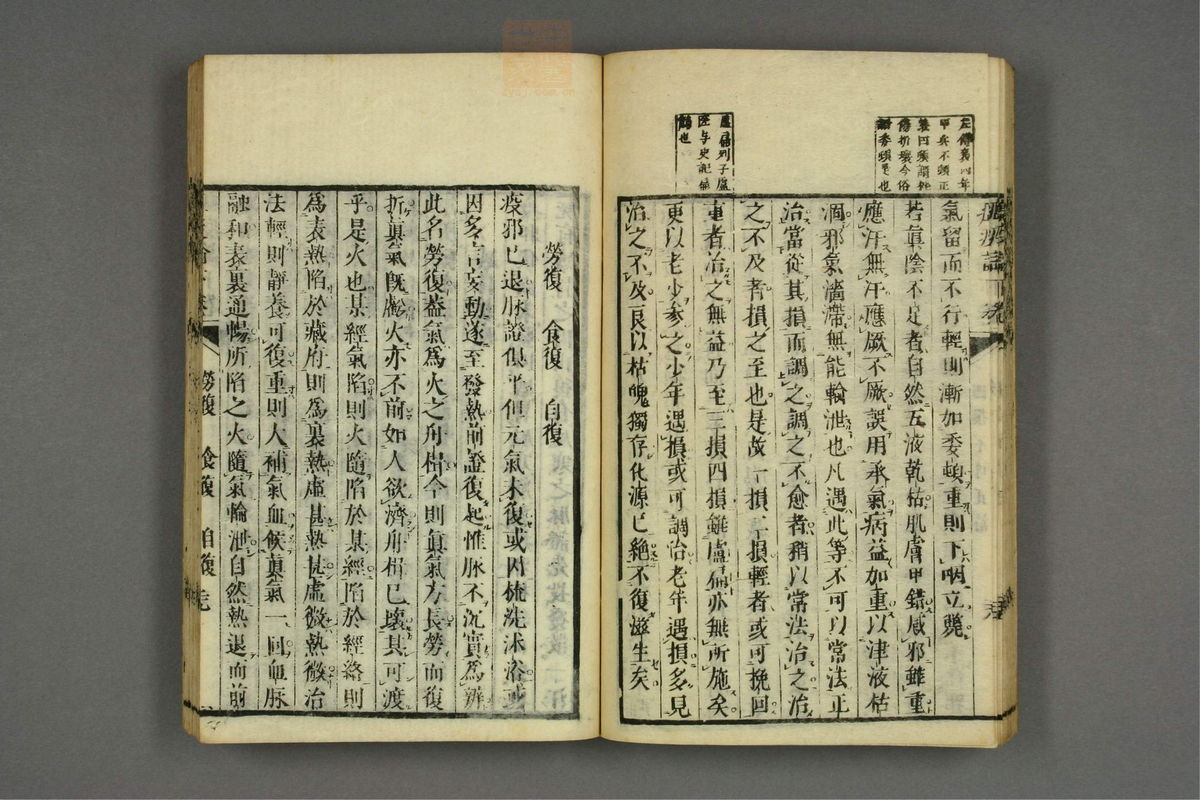 瘟疫論下卷
氣留而不行輕則漸加委頓重則下咽立斃
若眞陰不足者自然五液乾枯肌膚甲錯感邪雖重
應汗無汗應厥不厥誤用承氣病益加重以津液枯
涸邪氣濇滯無能輸泄也凡遇此等不可以常法正
治當從其損而調之調之不愈者稍以常法治之治
之不及者損之至也是故一損二損輕者或可挽回
重者治之無益乃至三損四損雖盧扁亦無所施矣
更以老少參之少年遇損或可調治老年遇損多見
治之不及良以枯魄獨存化源已絶不復滋生矣
左傳襄四年
甲兵不頓正
今俗
也
盧扁列子盧
医与史記扁
鵲也
勞復 食復 自復
疫邪已退脉證俱平但元氣未復或因梳洗沐浴或
因多言妄動遂至發熱前證復起惟脉不沉實爲辨
此名勞復葢氣爲火之舟楫今則眞氣方長勞而復
折眞氣既虧火亦不前如人欲濟舟楫已壞其可渡
乎是火也某經氣陷則火隨陷於某經陷於經絡則
爲表熱陷於藏府則爲裏熱虛甚熱甚虛微熱微治
法輕則靜養可復重則大補氣血候眞氣一回血脉
融和表裏通暢所陷之火隨氣輸泄自然熱退而前
勞復 食復 自復
zysj.com.cn